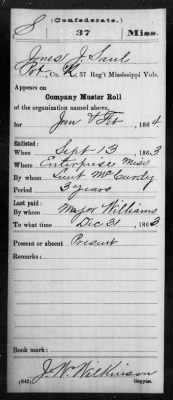 S (Confederate.)
37 Miss.
Jones J Saul
Pvt, Co. K, 37 Reg't Mississippi Vols.
Appears on
Company Muster Roll
of the organization named above,
for Jan & Feb, 1864.
Enlisted:
When Sept 13, 1863
Where Enterprise Miss
By whom Lieut McCurdy
Period 3 years
Last paid:
By whom Major Williams
To what time Dec 31, 1863.
Present or absent Present
Remarks:
Book mark:
J. W. Wilkinson
(642) Copyist.